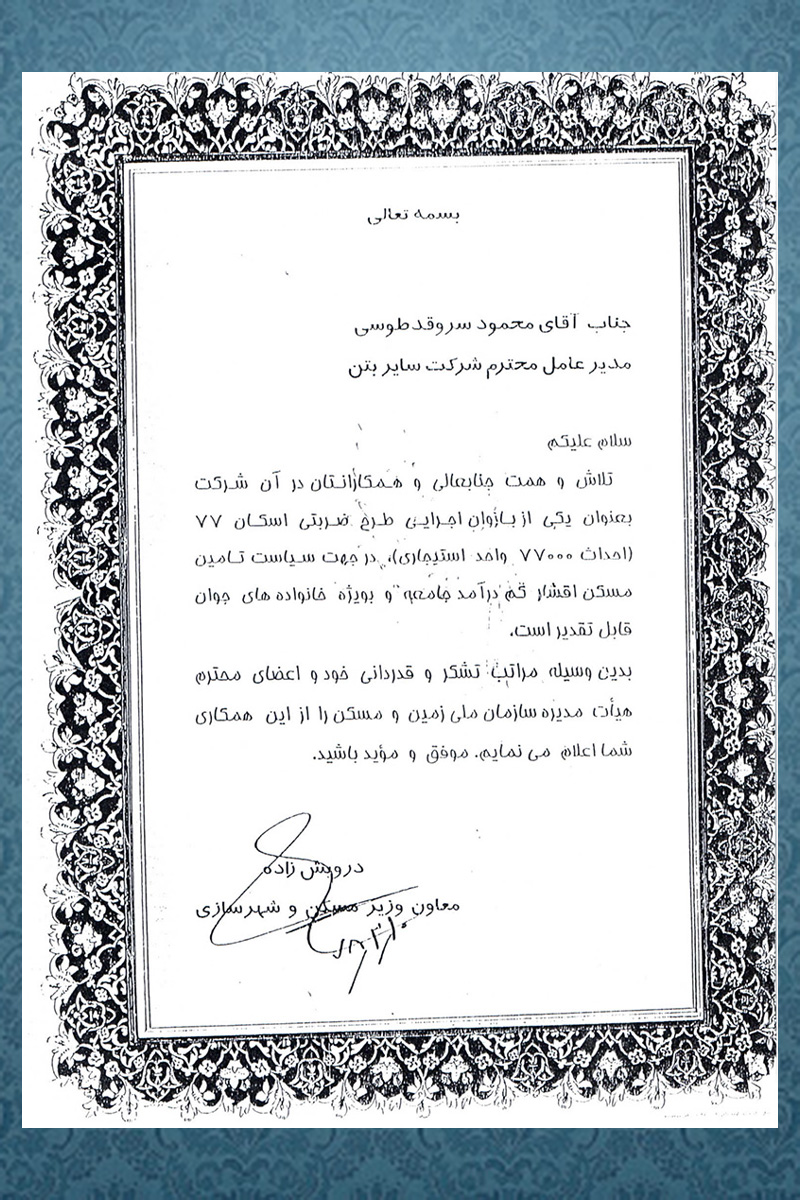 بسمه تعالی
جناب آقای محمود سروقدطوسی
مدیر عامل محترم شرکت سایر بتن
سلام علیکم
تلاش و همت جنابعالی و همکارانتان در آن شرکت
بعنوان یکی از بازوان اجرایی طرح ضربتی اسکان ۷۷
(احداث ۷۷۰۰۰ واحد استیجاری)، در جهت سیاست تامین
مسکن اقشار کم درآمد جامعه و بویژه خانواده های جوان
قابل تقدیر است.
بدین وسیله مراتب تشکر و قدردانی خود و اعضای محترم
هیأت مدیره سازمان ملی زمین و مسکن را از این همکاری
شما اعلام می نمایم. موفق و مؤید باشید.
درویش زاده
معاون وزیر مسکن و شهرسازی